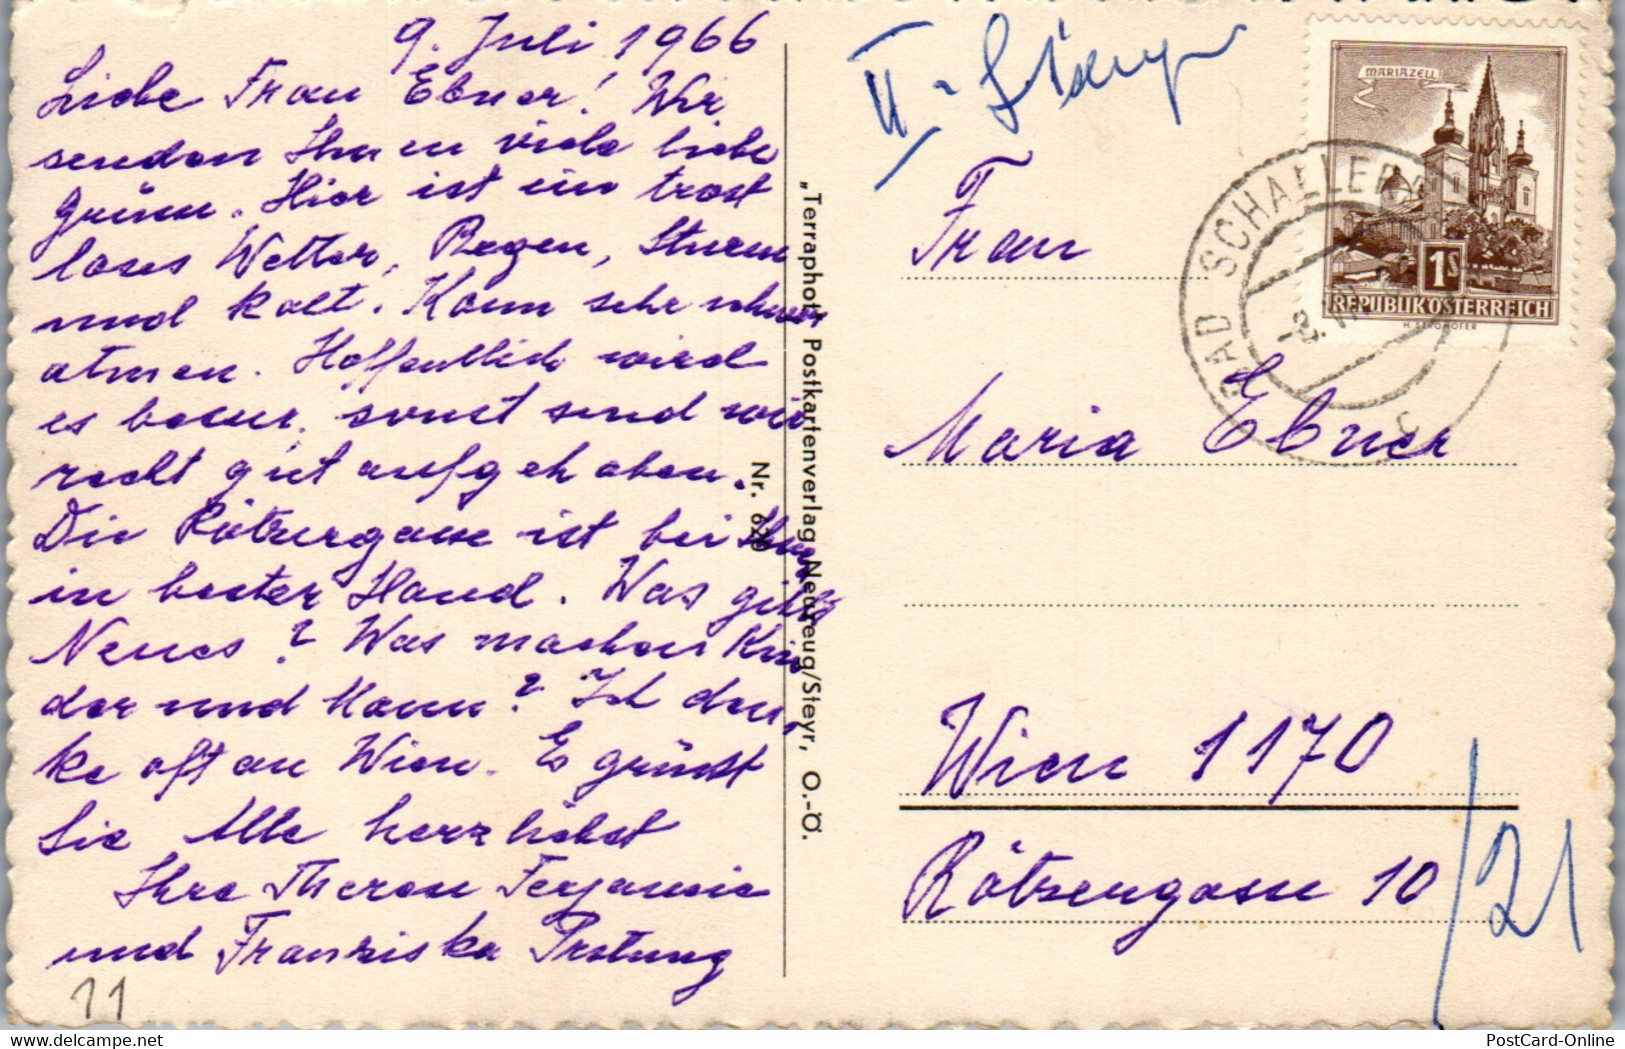 9. Juli 1966
Liebe Frau Ebner! Wir
senden Ihnen viele liebe
Grüsse. Hier ist ein trost
loses Wetter, Regen, Sturm
und kalt. Kann sehr schwer
atmen. Hoffentlich wird
es besser, sonst sind wir
recht gut aufgehoben.
Die Rötzergasse ist bei Ihnen
in bester Hand. Was gibts
Neues? Was machen Kin
der und Mann? Ich den,
ke oft an Wien. Es grüsst
Sie Alle herzlichst
Ihre Therese
und Franziska
11
„Terraphot" Postkartenverlag Neuzeug/Steyr, O.-Ö.
Nr. 620
II - Stiege
MARIAZELL
1S
REPUBLIK ÖSTERREICH
H. STROHOFER
BAD SCHALLERB
Frau
Maria Ebner
Wien 1170
Rötzergasse 10
/21
PostCard-Online